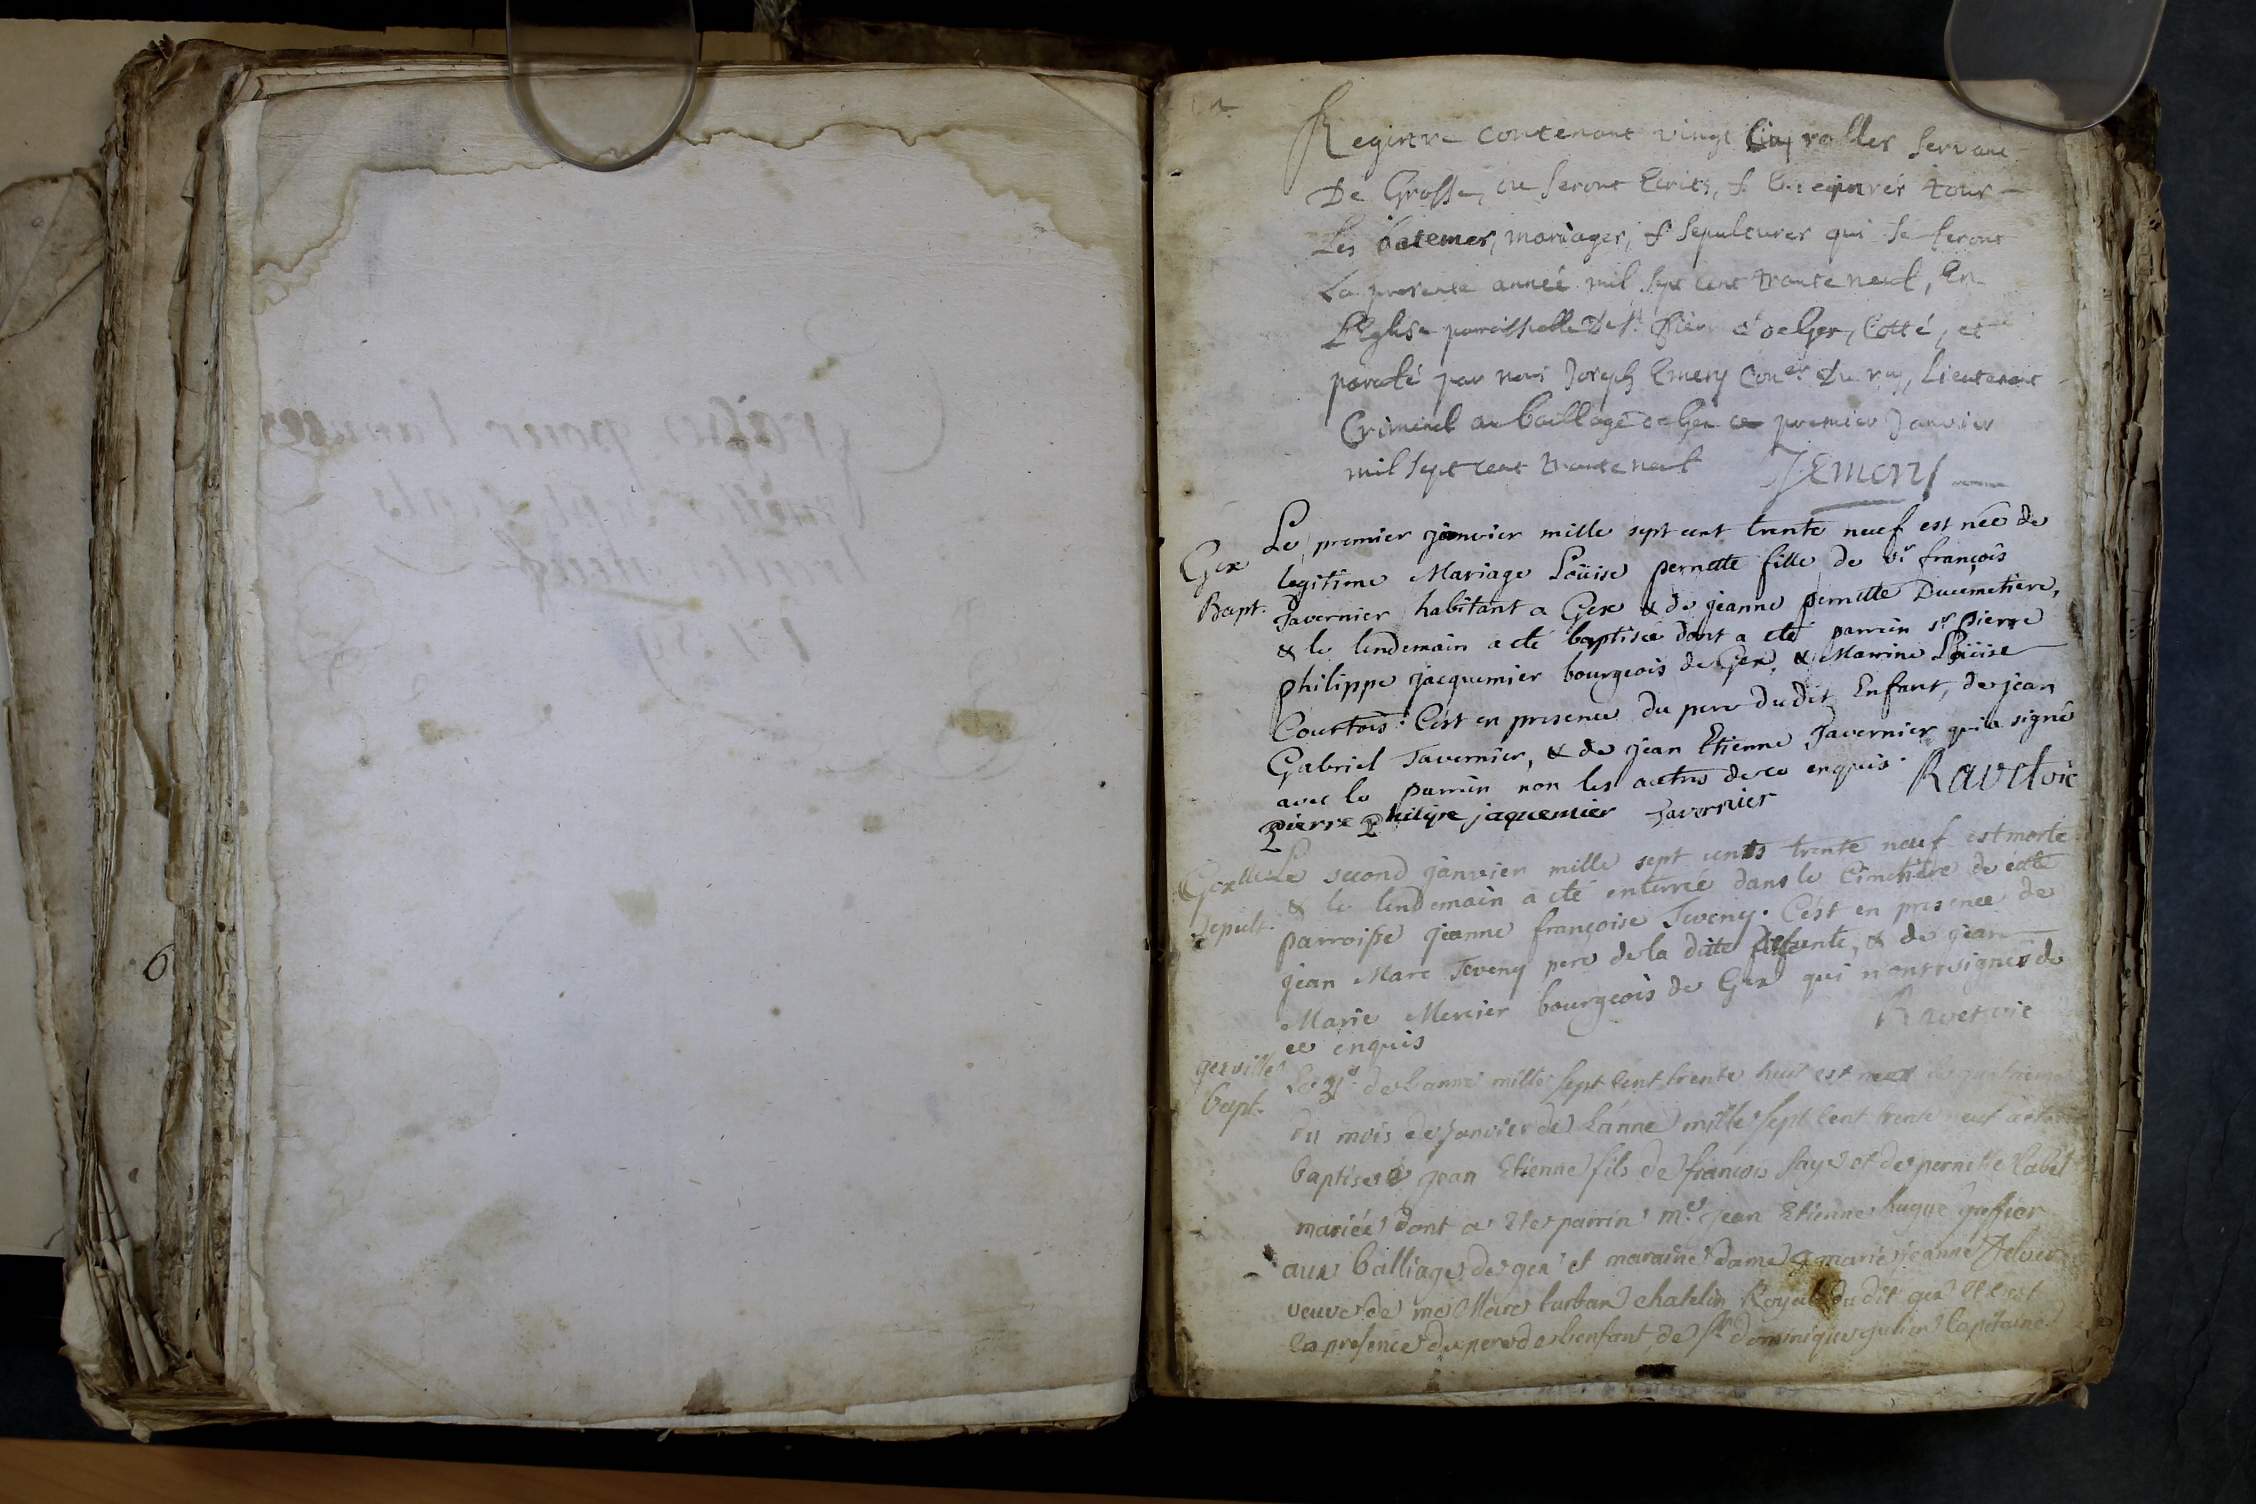 6
Registre contenant vingt cinq rolles servant
De Grosse, ou seront Ecrits, & Enregistrés tous
Les batemes, mariages, & sepultures qui se feront
La presente année mil sept cent trante neuf, En
L'Eglise paroissialle De St. Pierre de Gex, Cotté, et
paraffé par nous Joseph Emery Coner. Du roy, Lieutenant
Criminel au bailliage de Gex ce premier Janvier
mil sept cent trante neuf
Gex
Bapt.
Le premier janvier mille sept cent trente neuf est née de
legitime Mariage Loüise pernette fille de Sr. françois
Tavernier habitant a Gex & de jeanne pernette Ducimetiere,
& le lendemain a eté baptisée dont a eté parrein sr. pierre
philippe jacquemier bourgeois de Gex, & Marrine Loüise
Courtois: C'est en presence du pere dudit Enfant, de jean
Gabriel Tavernier, & de jean Etienne Tavernier qui a signé
avec le parrein non les autres de ce enquis.
Ravetoie
pierre philipe jaquemier Tavernier
Sepult.
Le second janvier mille sept cents trente neuf est morte
& le lendemain a eté enterrée dans le Cimetiere de cette
parroisse jeanne françoise Teveny. C'est en presence de
jean Marc Teveny pere de la ditte deffunte, & de jean
Marie Mercier bourgeois de Gex qui n'ont signés de
ce enquis
gex ville
bapt.
Le 31e. de l'anne mille sept cent trente huit est
du mois de janvier de l'anne mille sept cent trente neuf
baptisé jean Etienne fils de françois et de pernette
mariés dont a ete parrin me. jean Etienne hugue greffier
aux balliage de gex et maraine dame marie jeanne
veuve de me Marc turban chatelin Royal du dit gex et c'est
en presence du pere de l'enfant de sr. dominique Capitaine